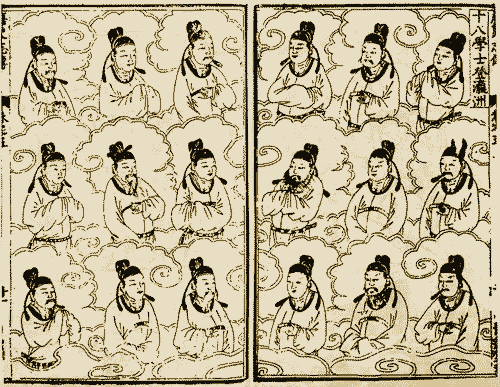 十八學士登瀛洲